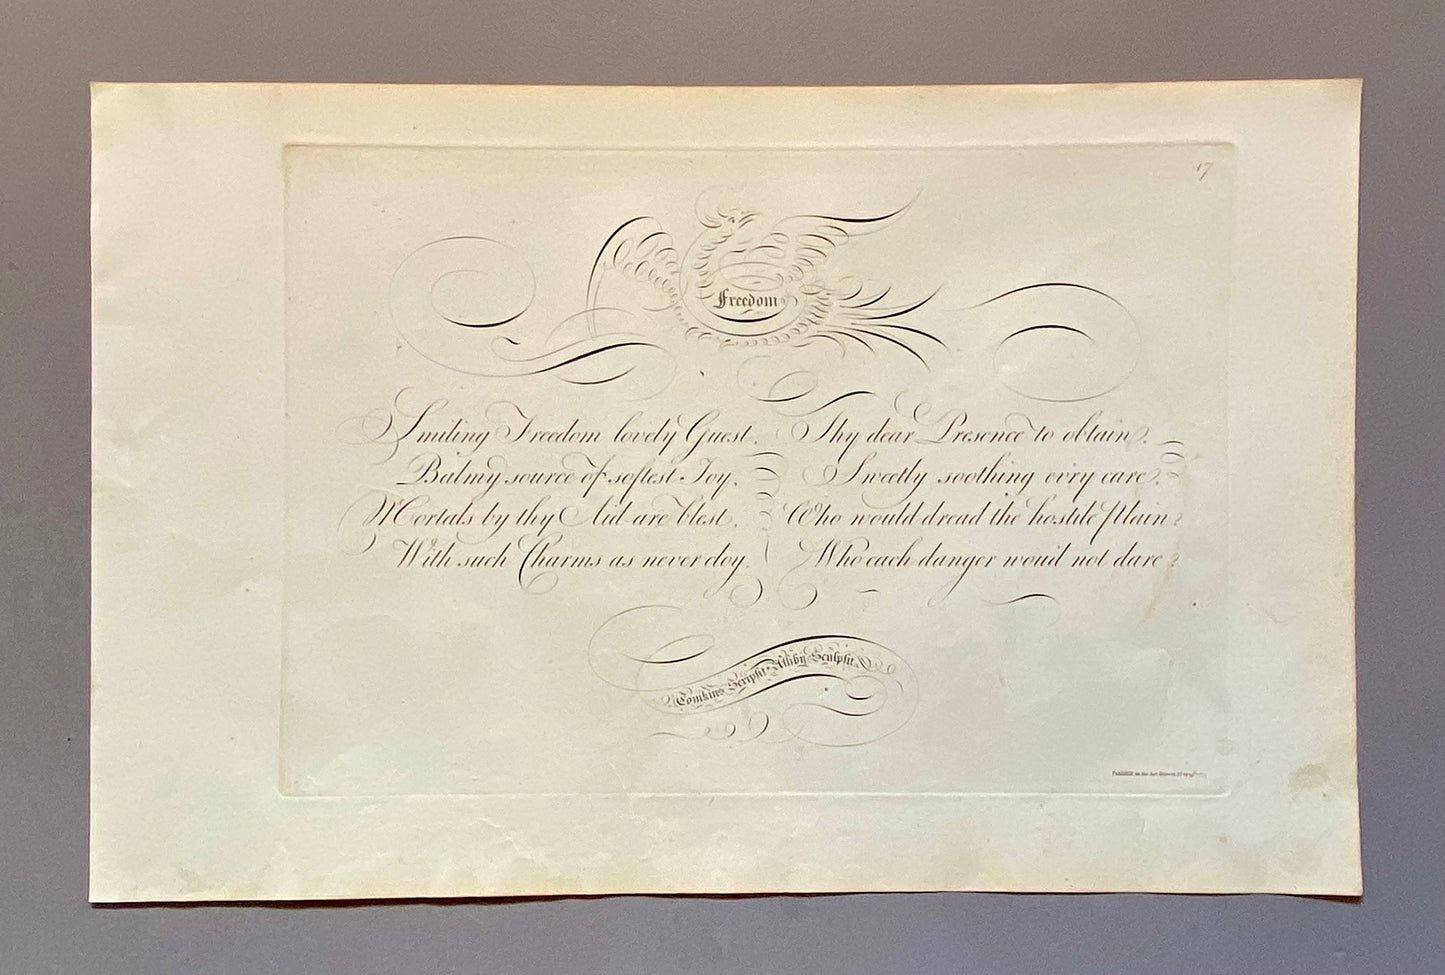 17
Freedom
Smiling Freedom lovely Guest,
Balmy source of softest Joy,
Mortals by thy Aid are blest,
With such Charms as never cloy,
Thy dear Presence to obtain,
Sweetly soothing ev'ry care,
Who would dread the hostile Plain?
Who each danger wou'd not dare?
Tomkins Scripsit Ashby Sculpsit
Publish'd as the Act directs